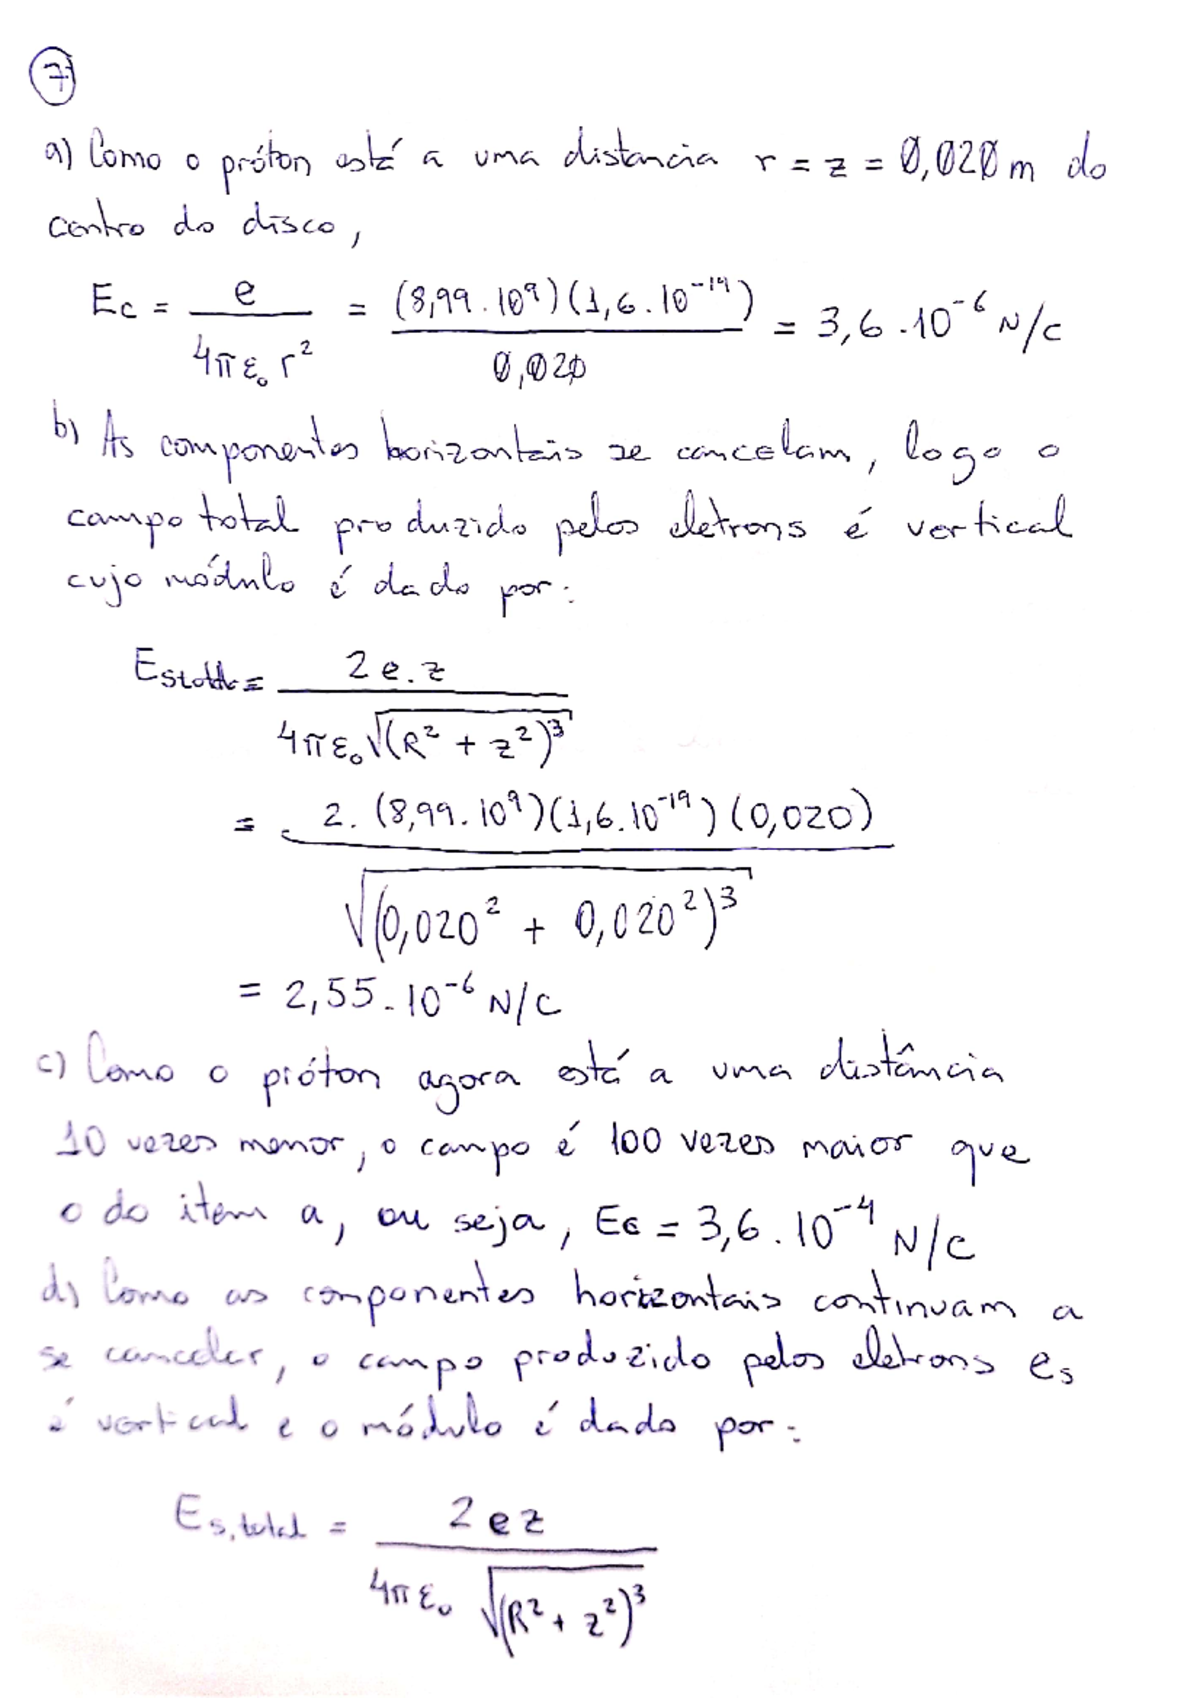 7
a) Como o próton está a uma distancia r = z = 0,020 m do
centro do disco,
Ec = e / 4πε₀ r² = (8,99 . 10⁹)(1,6 . 10⁻¹⁹) / 0,020 = 3,6 . 10⁻⁶ N/C
b) As componentes horizontais se cancelam, logo o
campo total produzido pelos eletrons é vertical
cujo módulo é dado por:
= 2 e . z / 4πε₀ √(R² + z²)³
= 2 . (8,99 . 10⁹)(1,6 . 10⁻¹⁹)(0,020) / √(0,020² + 0,020²)³
= 2,55 . 10⁻⁶ N/C
c) Como o próton agora está a uma distância
10 vezes menor, o campo é 100 vezes maior que
o do item a, ou seja, Ec = 3,6 . 10⁻⁴ N/C
d) Como as componentes horizontais continuam a
se cancelar, o campo produzido pelos eletrons es
é vertical e o módulo é dado por:
Es,total = 2 e z / 4πε₀ √(R² + z²)³